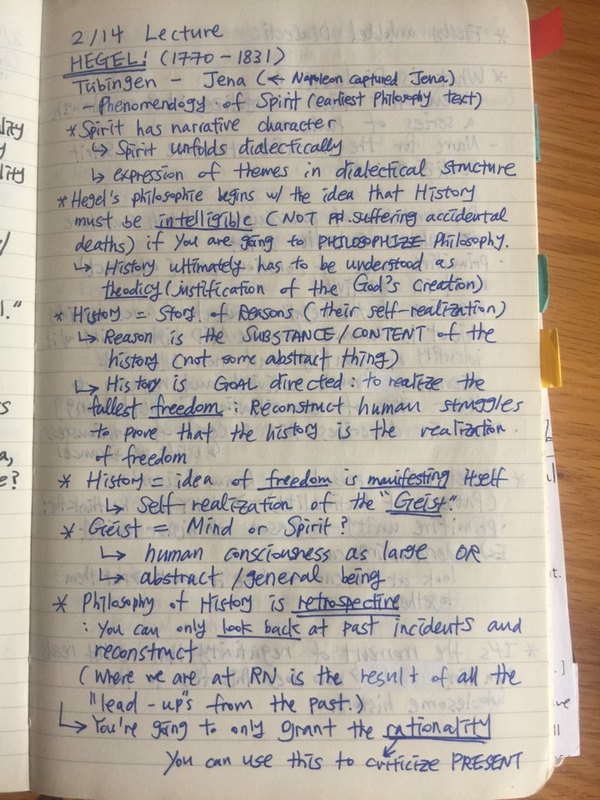 2/14 Lecture
HEGEL: (1770-1831)
Tübingen - Jena (← Napoleon captured Jena)
- Phenomendogy of Spirit (earliest Philosophy text)
* Spirit has narrative character
↳ Spirit unfolds dialectically
↳ expression of themes in dialectical structure
* Hegel's philosophie begins w/ the idea that History
must be intelligible (NOT suffering accidental
deaths) if you are going to PHILOSOPHIZE Philosophy.
↳ History ultimately has to be understood as
theodicy (justification of the God's creation)
* History = Story of Reasons (their self-realization)
↳ Reason is the SUBSTANCE/CONTENT of the
history (not some abstract thing)
↳ History is GOAL directed: to realize the
fullest freedom: Reconstruct human struggles
to prove that the history is the realization
of freedom
* History = idea of freedom is manifesting itself
↳ Self-realization of the "Geist."
* Geist = Mind or Spirit?
↳ human consciousness as large OR
↳ abstract/general being
* Philosophy of History is retrospective
: You can only look back at past incidents and
reconstruct
(where we are at RN is the result of all the
"lead-up"s from the past.)
↳ You're going to only grant the rationality
You can use this to criticize PRESENT